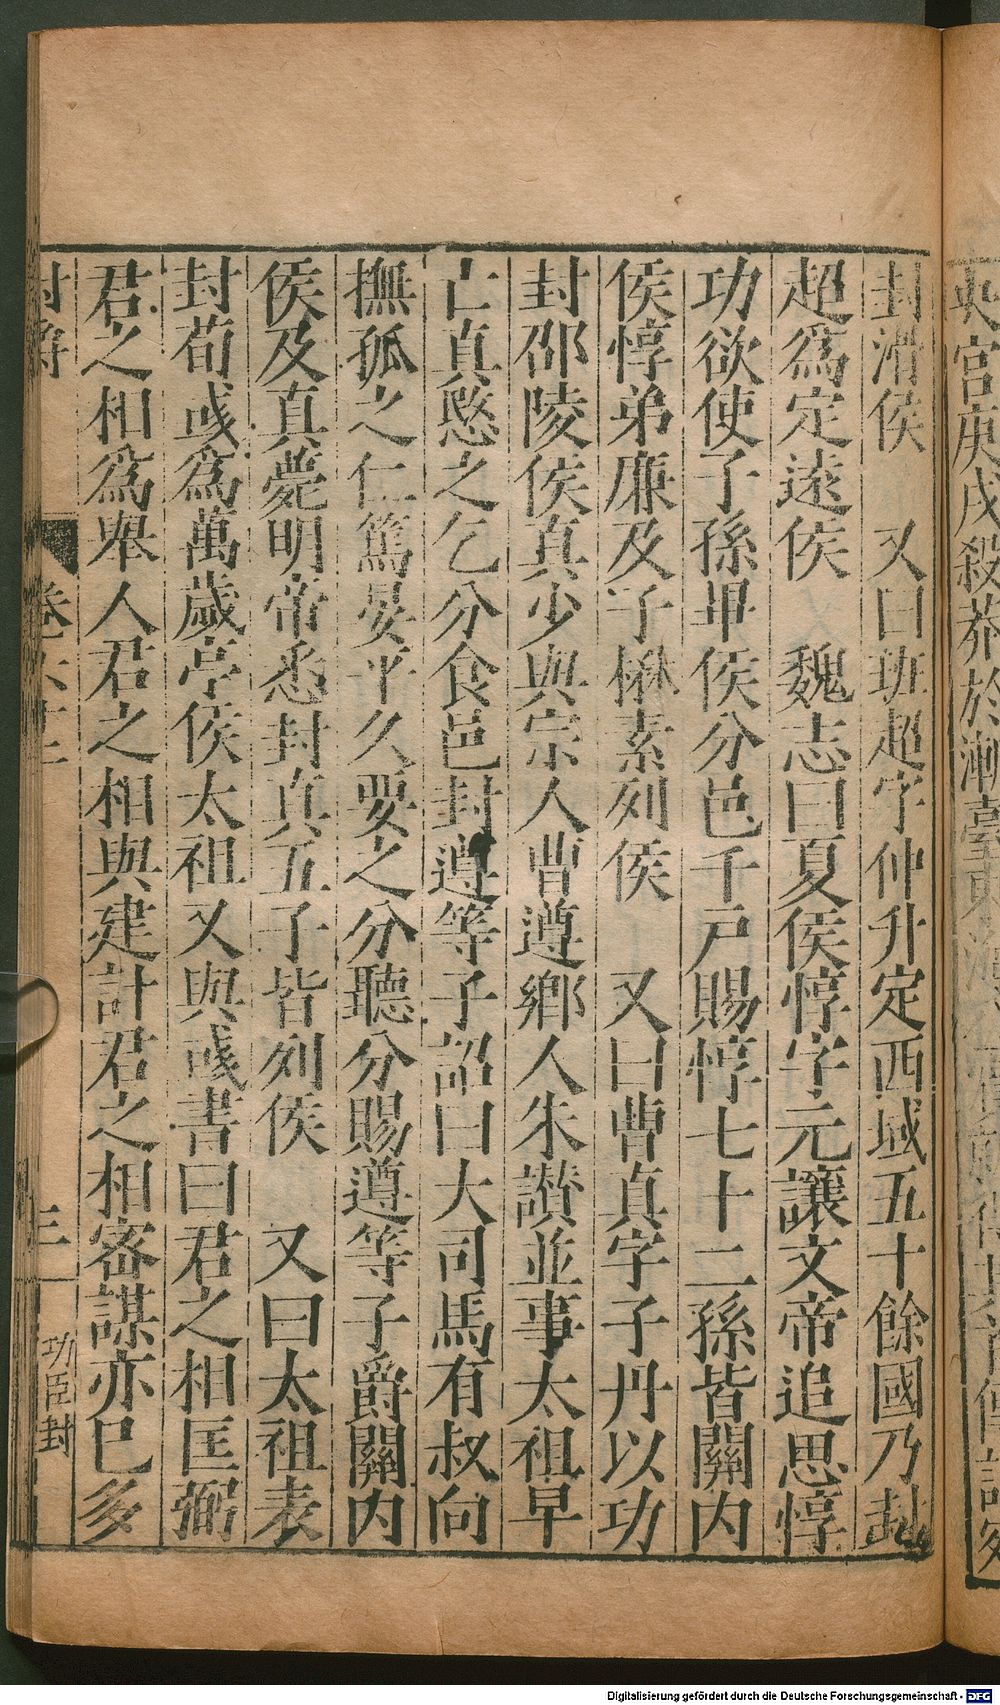 封滑侯　又曰班超字仲升定西域五十餘國乃封
超爲定遠侯　魏志曰夏侯惇字元讓文帝追思惇
功欲使子孫畢侯分邑千戸賜惇七十二孫皆關内
侯惇弟廉及子楙素列侯　又曰曹真字子丹以功
封邵陵侯真少與宗人曹遵鄉人朱讃並事太祖早
亡真愍之乞分食邑封遵等子詔曰大司馬有叔向
撫孤之仁篤晏平久要之分聽分賜遵等子爵關内
侯及真薨明帝悉封真五子皆列侯　又曰太祖表
封荀彧爲萬歲亭侯太祖又與彧書曰君之相匡弼
君之相爲舉人君之相與建計君之相密謀亦巳多
封爵
三
功臣封
Digitalisierung gefördert durch die Deutsche Forschungsgemeinschaft - DFG